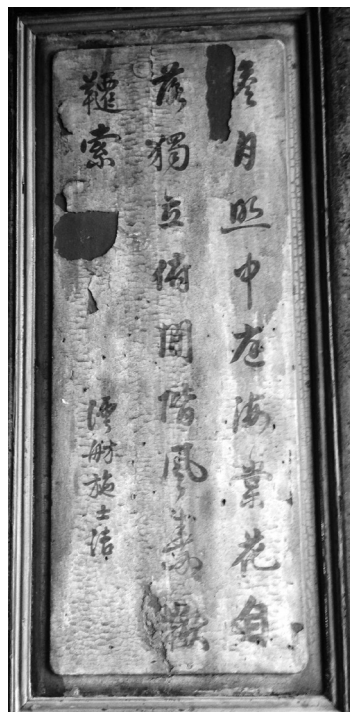 澹月照中庭海棠花自
落獨立俯閒階風動鞦
韆索
澐舫施士洁